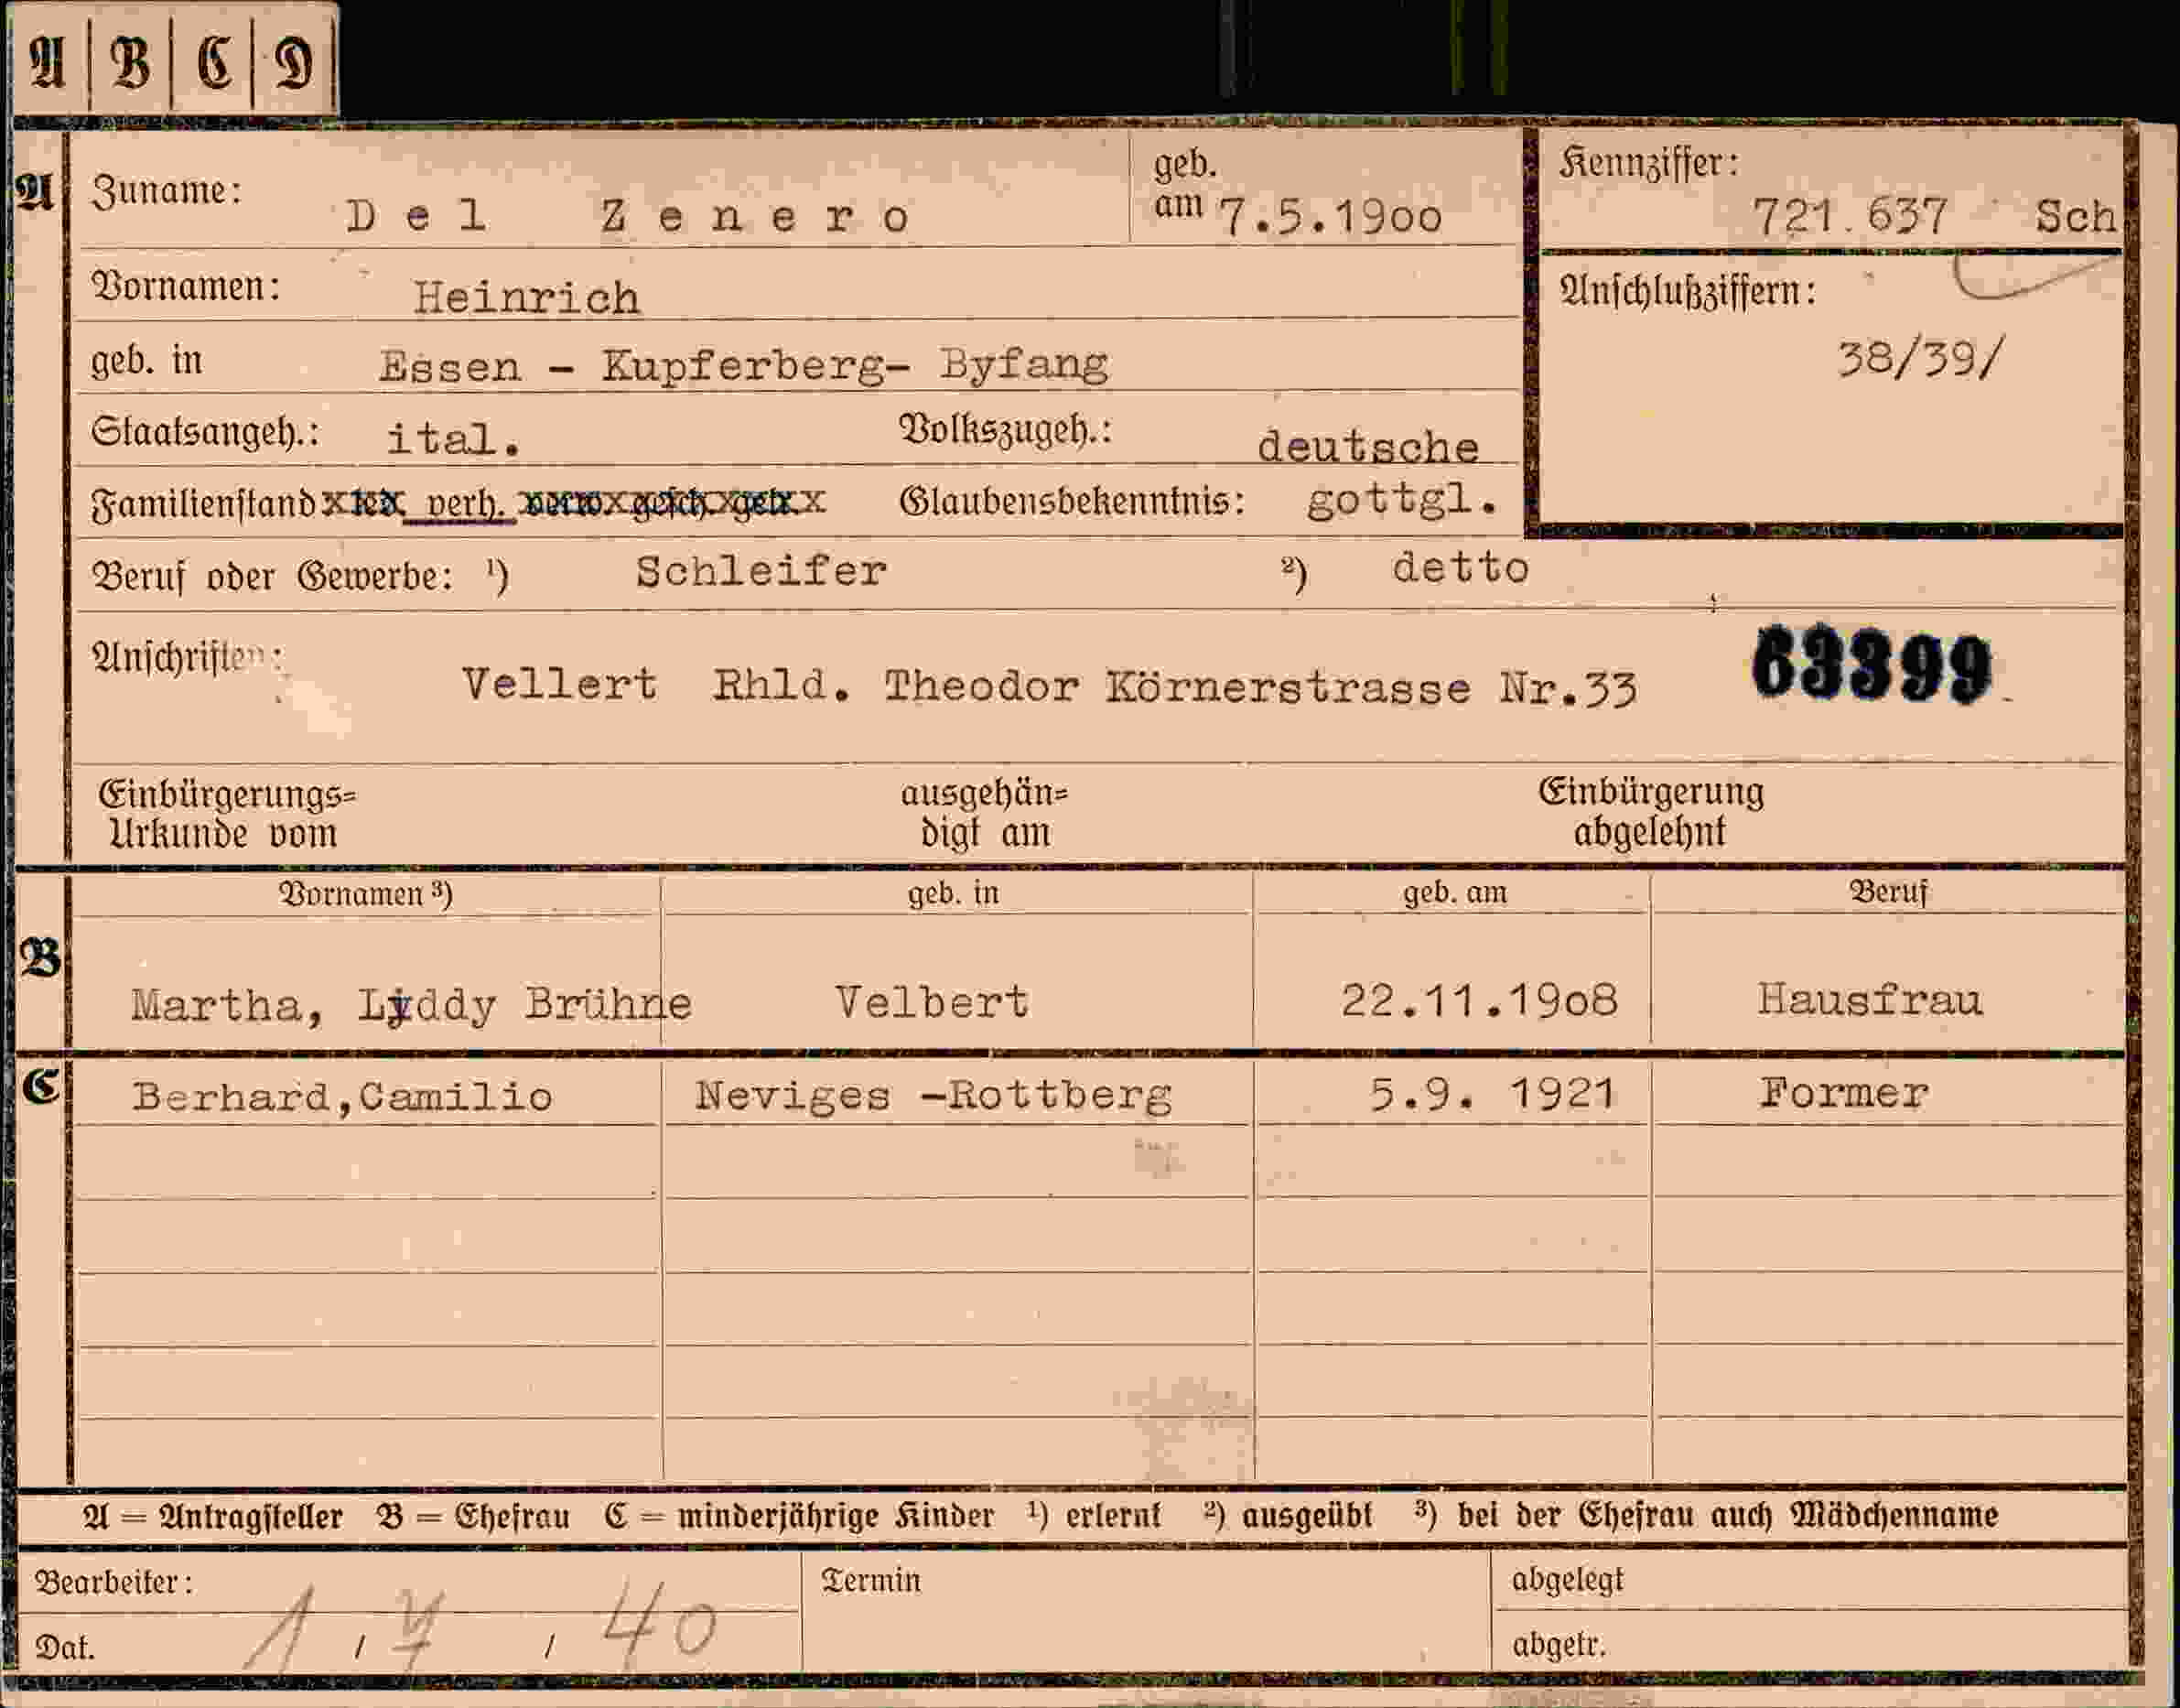 A | B | C | D
A Zuname: Del Zenero geb. am 7.5.19oo Kennziffer: 721.637 Sch
Vornamen: Heinrich Anschlußziffern:
geb. in Essen - Kupferberg- Byfang 38/39/
Staatsangeh.: ital. Volkszugeh.: deutsche
Familienstand led. verh. verw. gesch. getr. Glaubensbekenntnis: gottgl.
Beruf oder Gewerbe: ¹) Schleifer ²) detto
Anschriften: Vellert Rhld. Theodor Körnerstrasse Nr.33 63399
Einbürgerungs= ausgehän= Einbürgerung
Urkunde vom digt am abgelehnt
Vornamen ³) geb. in geb. am Beruf
B Martha, Lyddy Brühne Velbert 22.11.19o8 Hausfrau
C Berhard,Camilio Neviges -Rottberg 5.9. 1921 Former
A = Antragsteller B = Ehefrau C = minderjährige Kinder ¹) erlernt ²) ausgeübt ³) bei der Ehefrau auch Mädchenname
Bearbeiter: Termin abgelegt
Dat. 1 / 7 / 40 abgetr.